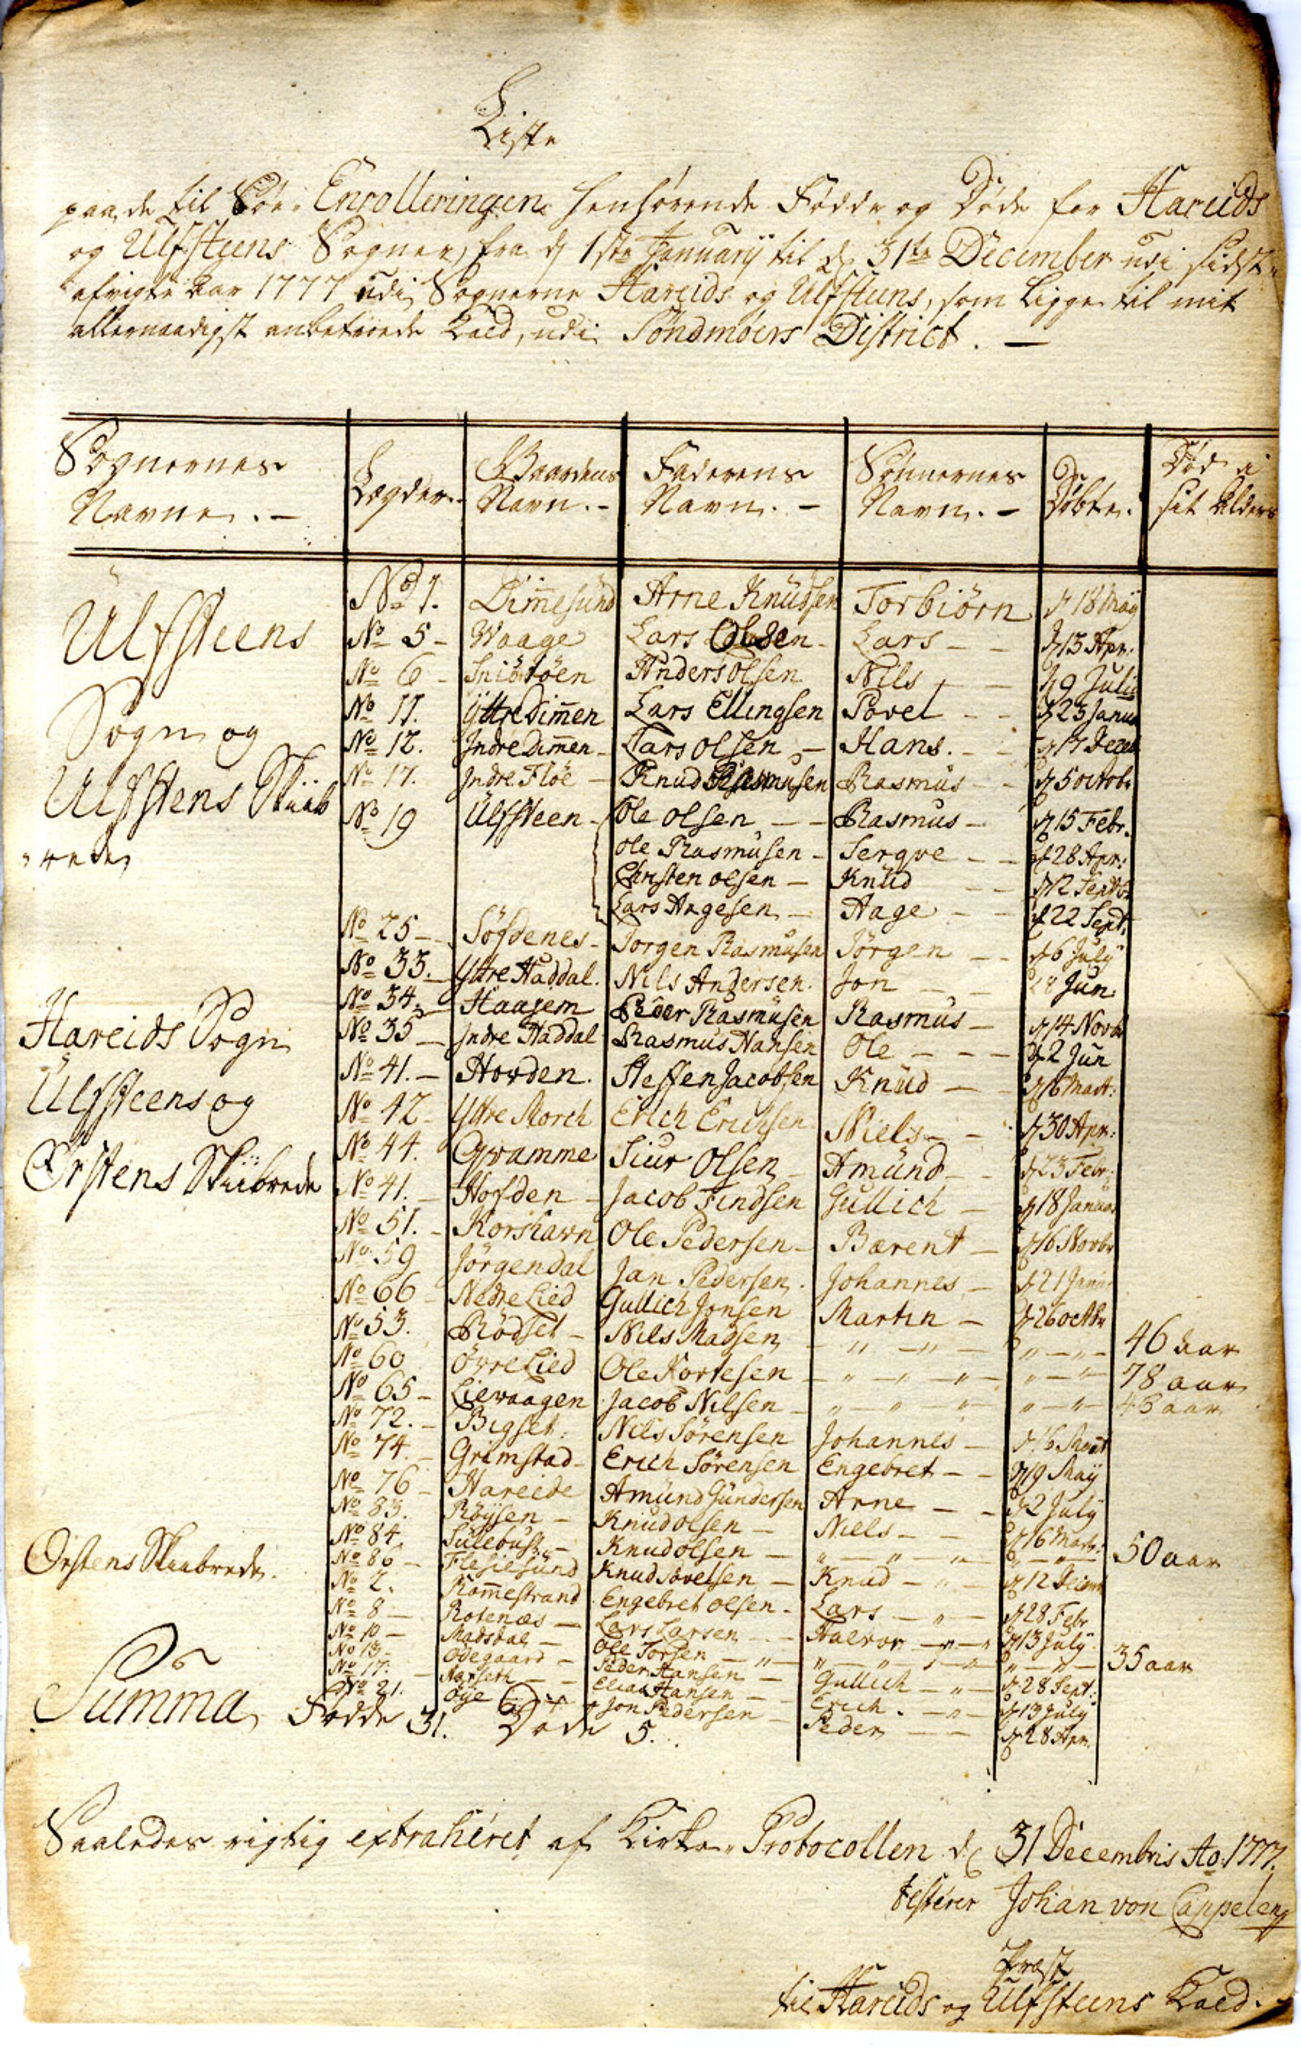 Liste
paa de til Söe-Enrolleringen henhörende Födde og Döde for Hareids
og Ulfsteens Sogner, fra d 1ste Januarij til d 31te December udi sidst
afvigte Aar 1777 udi Sognerne Hareids og Ulfsteens, som ligger til mit
allernaadigst anbetroede Kald, udi Söndmöers District. —
Sognernes Navne. — Lægder. — Gaardens Navn. — Faderens Navn. — Sönnernes Navn. — Döbte. Död i sit Alders
Ulfsteens
Sogn og
Ulfstens Skiib
rede
No 1. Dimmesund Arne Knudsen Torbiörn d 18 Maij
No 5 - Waage Lars Olsen - Lars - - d 13 Apr:
No 6 - Sniötöen Anders Olsen Nils - - d 9 Julii
No 11. Yttre Dimmen Lars Ellingsen Povel - - d 23 Janua
No 12. Indre Dimmen - Lars Olsen - Hans. - - d 17 Decem
No 17. Indre Flöe - Knud Rasmusen Rasmus - d 5 Octobr
No 19 Ulfsteen - Ole Olsen - - Rasmus - d 15 Febr.
Ole Rasmusen - Sergve - - d 28 Apr:
Christen Olsen - Knud - - d 2 Septbr
Lars Aagesen - Aage - - d 22 Sept.
No 25 - Söfdenes - Jorgen Rasmusen Jörgen - - d 6 July
No 33. - Yttre Haddal. Nils Andersen. Jon - - 28 Jun
Hareids Sogn
Ulfsteens og
Örstens Skibrede
No 34. - Haasem Peder Rasmusen Rasmus - d 14 Novbr
No 35 - Indre Haddal Rasmus Hansen Ole - - - d 2 Jun
No 41. - Hovden. Steffen Jacobsen Knud - - d 16 Mart:
No 42 - Yttre Morch Erich Erichsen Niels - - d 30 Apr:
No 44. Qvamme Siur Olsen - Amund - - d 23 Febr:
No 41. - Hofden - Jacob Findsen Gullich - d 18 Janua
No 51. - Korshavn Ole Pedersen - Bærent - d 16 Novbr
No 59 Jörgendal Jan Pedersen. Johannes - d 21 Janu
No 66 - Nedre Lied Gullich Jonsen Martin - d 26 Octbr
No 53. Rödset - Nils Madsen - " - " - " - " - 46 Aar
No 60 Övre Lied Ole Kortesen - " - " - " - " - " 78 aar
No 65 - Liewaagen Jacob Nilsen - " - " " " - " 43 aar
No 72. - Bigset. Nils Sörensen Johannes - d 16 Mart
No 74. - Grimstad - Erich Sörensen Engebret - - d 19 Maij
No 76 - Hareide Amund Gundersen Arne - - d 2 July
No 83. Röysen - Knud Olsen - Niels - - d 16 Mart.
No 84 Sulebust - Knud Olsen - " - " - " " - " - 50 aar
Örstens Skibrede.
No 86 - Flesiesund Knud Povelsen - Knud - " - d 12 Decem
No 2. Kommestrand Engebret Olsen - Lars - " - d 28 Febr
No 8 - Rotenæs - Lars Larsen - - Halvor - " - " d 13 July
No 10 - Madsdal - Ole Torsen - " - " - " - " - " - 35 aar
No 13. Ödegaard - Peder Hansen - Gullich - " - d 28 Sept:
No 17. - Aarseth - - Elias Hansen - - Erich. - " - d 13 July
No 21. Öye - - Jon Pedersen - Peder - - d 28 Apr.
Summa, Födde 31. Döde 5.
Saaledes rigtig extraheret af Kirke-Protocollen d 31 Decembris Ao. 1777.
testerer Johan von Cappelen
Præst
til Hareids og Ulfsteens Kald.